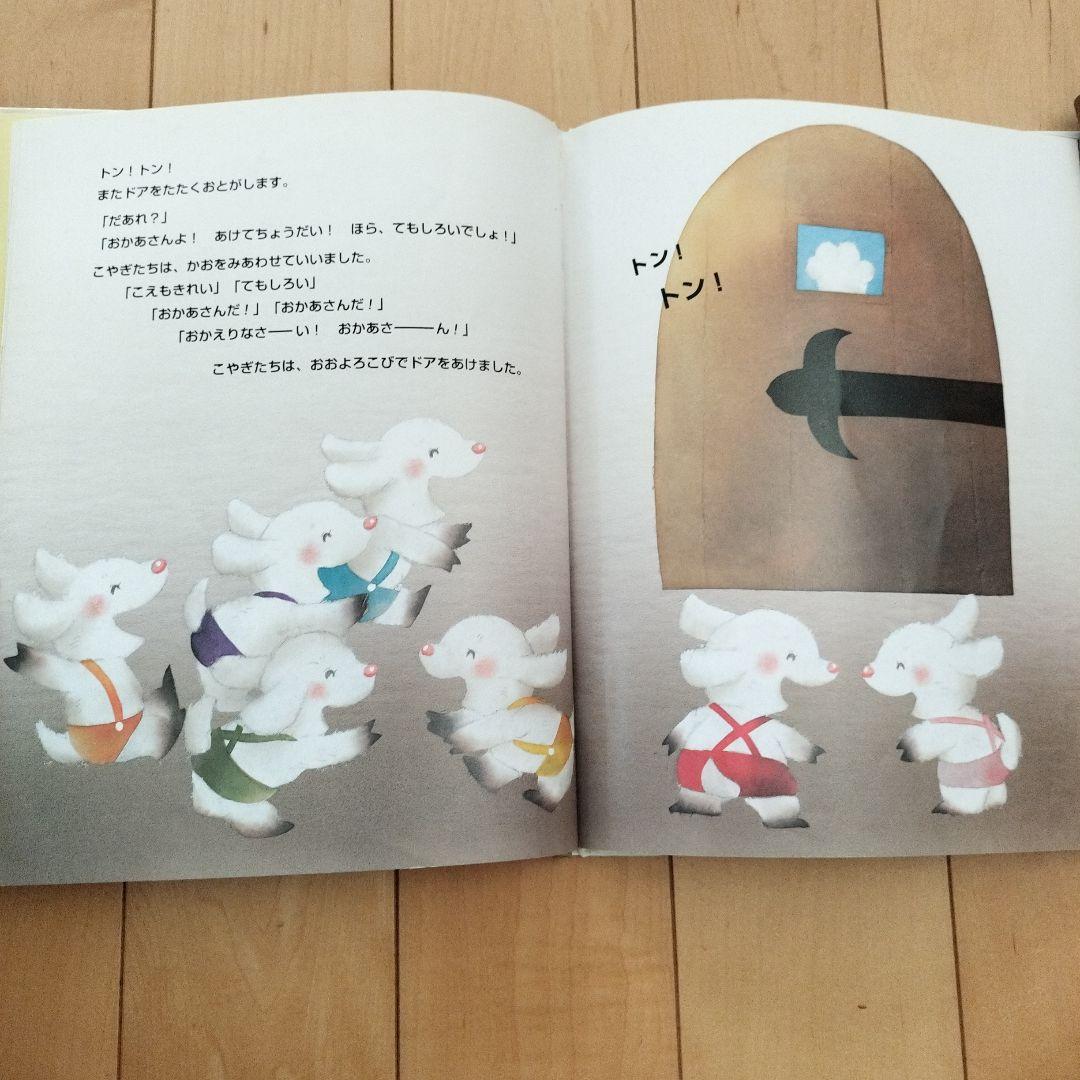 トン！トン！
またドアをたたくおとがします。
「だあれ？」
「おかあさんよ！　あけてちょうだい！　ほら、てもしろいでしょ！」
こやぎたちは、かおをみあわせていいました。
「こえもきれい」「てもしろい」
「おかあさんだ！」「おかあさんだ！」
「おかえりなさ——い！　おかあさ———ん！」
こやぎたちは、おおよろこびでドアをあけました。
トン！
トン！